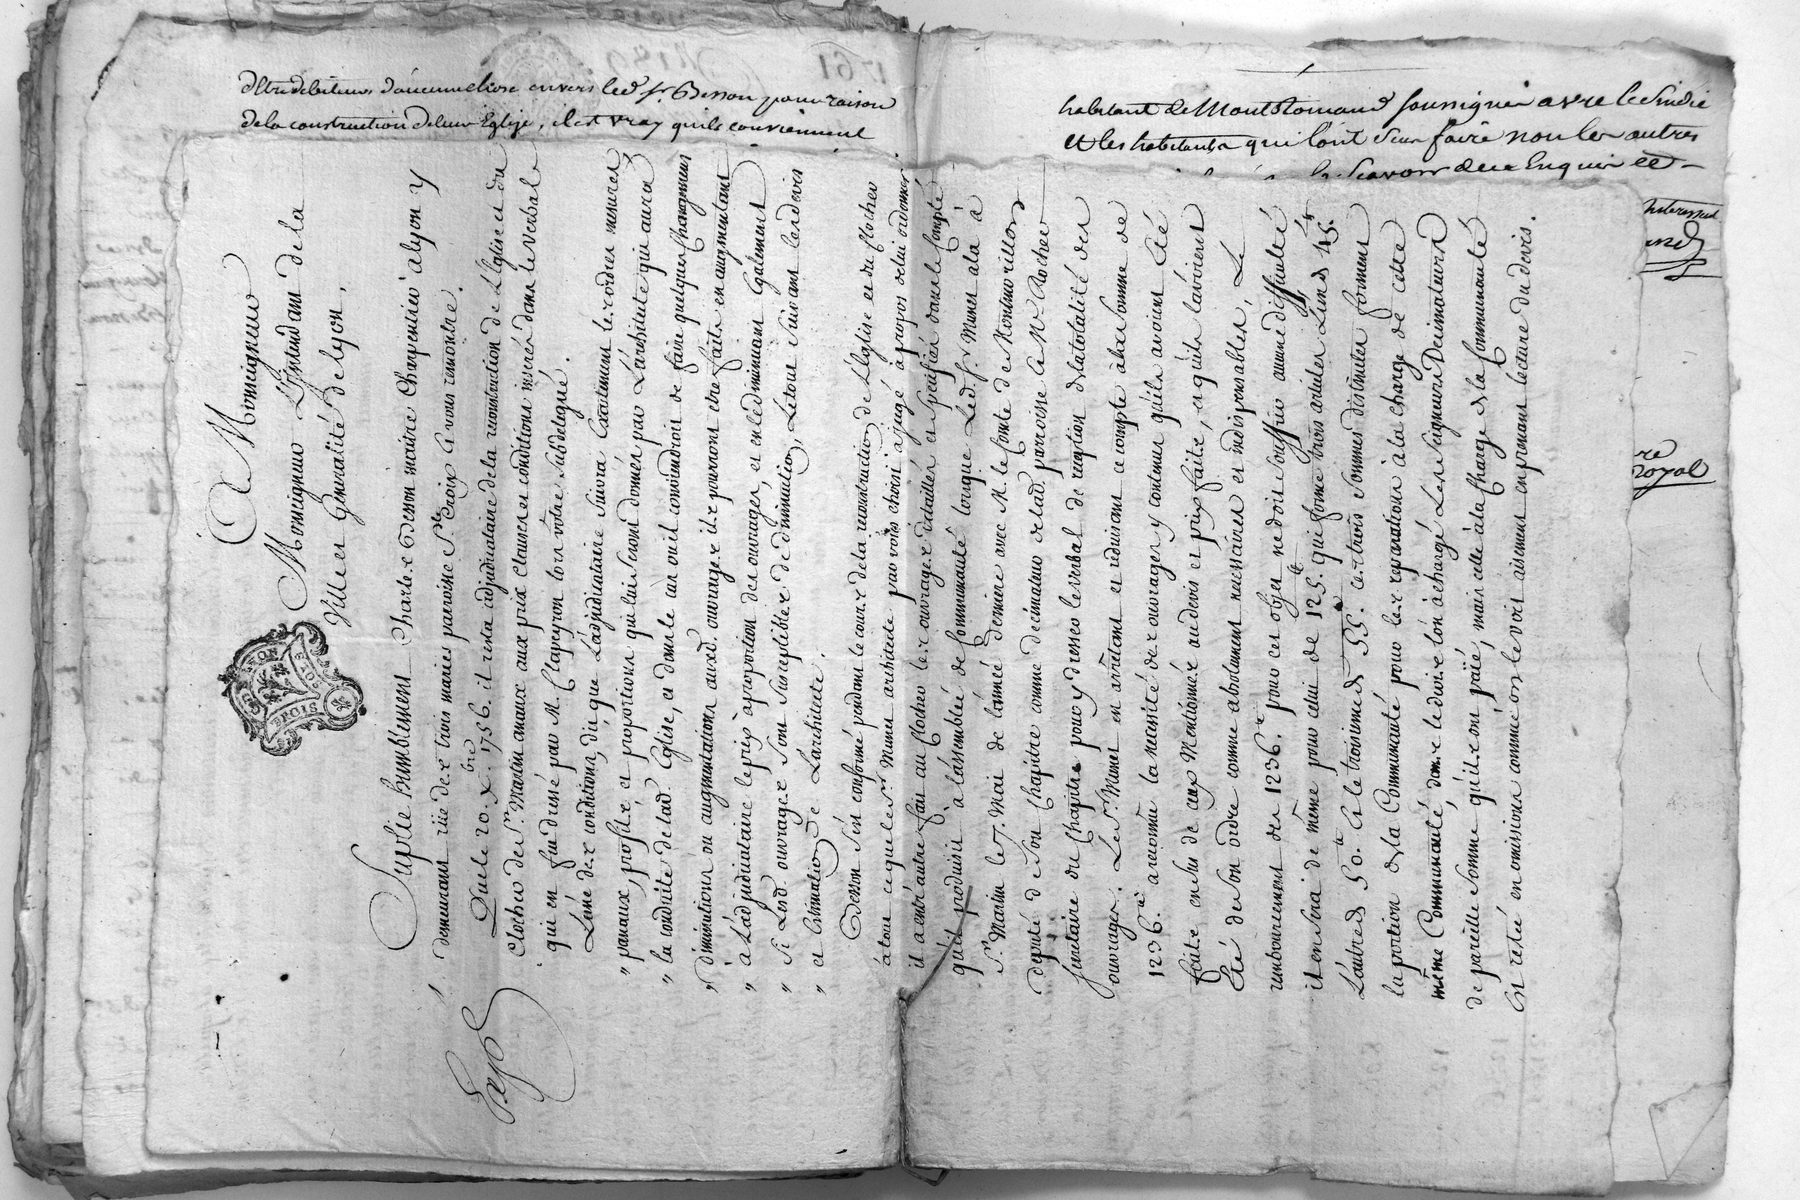 d'être debiteurs d'aucune chose envers led. sr. Besson pour raison
de la construction de leur Eglise, il est vray qu'ils conviennent
habitant de Montromand soussignés avec le Sindic
et les habitants qui l'ont sceu faire non les autres
le scavoir de ce Enquis et
royal
A Monseigneur
Monseigneur L'Intendant de la
Ville et Généralité de Lyon.
GEN. LYON
2 SOLS
Suplie humblement Charles Besson maitre Charpentier à Lyon y
demeurant rüe des trois maries paroisse Ste. Croix & vous remontre.
Que le 20. Xbre. 1756. il resta adjudicataire de la reconstruction de L'Eglise et du
Clocher de St. Martin en aux prix clauses et conditions inserées dans le Verbal
qui en fut dressé par M. Clapeyron lors vôtre Subdelegué.
L'une des conditions, dit que L'adjudicataire suivra Exactement les ordres mesures
" panaux, profils, et proportions qui lui seront donnés par L'architecte qui aura
" la conduite de lad. Eglise, et dans le cas ou il conviendroit de faire quelques Changemens
" diminutions ou augmentations auxd. ouvrages ils pourront être faits en augmentant
" à L'adjudicataire le prix à proportion des ouvrages, et en le diminuant Egalement
" si lesd. ouvrages sont susceptibles de diminution, Le tout suivant les devis
" et Estimation de L'architecte.
Besson s'est conformé pendant le cours de la reconstruction de L'Eglise et du Clocher
à tout ce que le Sr. Munet architecte par vous choisi a jugé à propos de lui ordonner
il a entr'autre fait au Clocher les ouvrages detaillés et specifiés dans le Compte
qu'il produisit à L'assemblée de Communauté lorsque Led. Sr. Munet ala à
St. Martin le 7. Mai de l'année derniere avec M. le Comte de Montmorillon
deputé de son Chapitre comme decimateur de lad. parroisse et Me. Rocher
secretaire du Chapitre pour y dresser le verbal de reception de la totalité des
ouvrages. Le Sr. Munet en arrêtant et réduisant ce compte à la somme de
1236. # a reconnu la necessité des ouvrages y contenus qu'ils avoient été
faits en sus de ceux Mentionnés au devis et prix faits, et qu'ils l'avoient
Eté de son ordre comme absolument necessaires et indispensables, Le
remboursement des 1236. # pour cet objet ne doit souffrir aucune difficulté
il en sera de même pour celui de 125. # qui forme trois articles L'un de 45. #
L'autre de 50. # et le troisieme de 55. # ces trois sommes distinctes forment
la portion de la Communauté pour les reparations à la charge de cette
même Communauté, dans le devis l'on à chargé Les Seigneurs Decimateurs
de pareille somme qu'ils ont païé, mais celle à la Charge de la Communauté
Est restée en omission comme on le voit aisement en prenant lecture du devis.